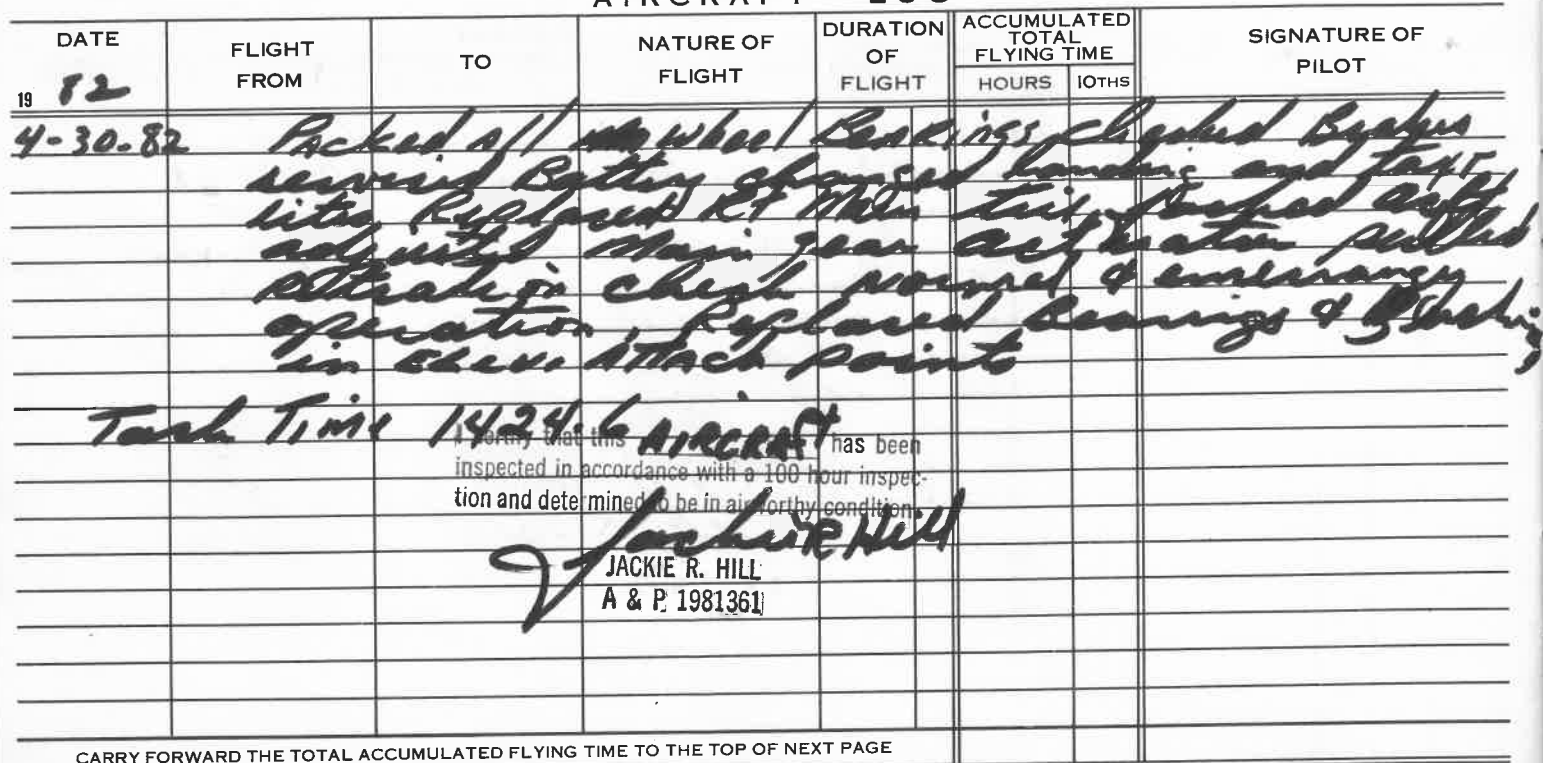 AIRCRAFT LOG
DATE FLIGHT FROM TO NATURE OF FLIGHT DURATION OF FLIGHT ACCUMULATED TOTAL FLYING TIME HOURS 10THS SIGNATURE OF PILOT
19 82
4-30-82 Packed All wheel Bearings, checked Brakes
servised Battery changed landing and taxi
lites, Replaced Rt Main tire, Jacked acft
adjusted Main gear actuator pulled
retraction check normel & emergency
operation, Replaced Bearings & Bushings
in Elev. Attach points
Tach Time 1424.6
I certify that this AIRCRAFT has been
inspected in accordance with a 100 hour inspec-
tion and determined to be in airworthy condition.
Jackie R Hill
JACKIE R. HILL
A & P 1981361
CARRY FORWARD THE TOTAL ACCUMULATED FLYING TIME TO THE TOP OF NEXT PAGE